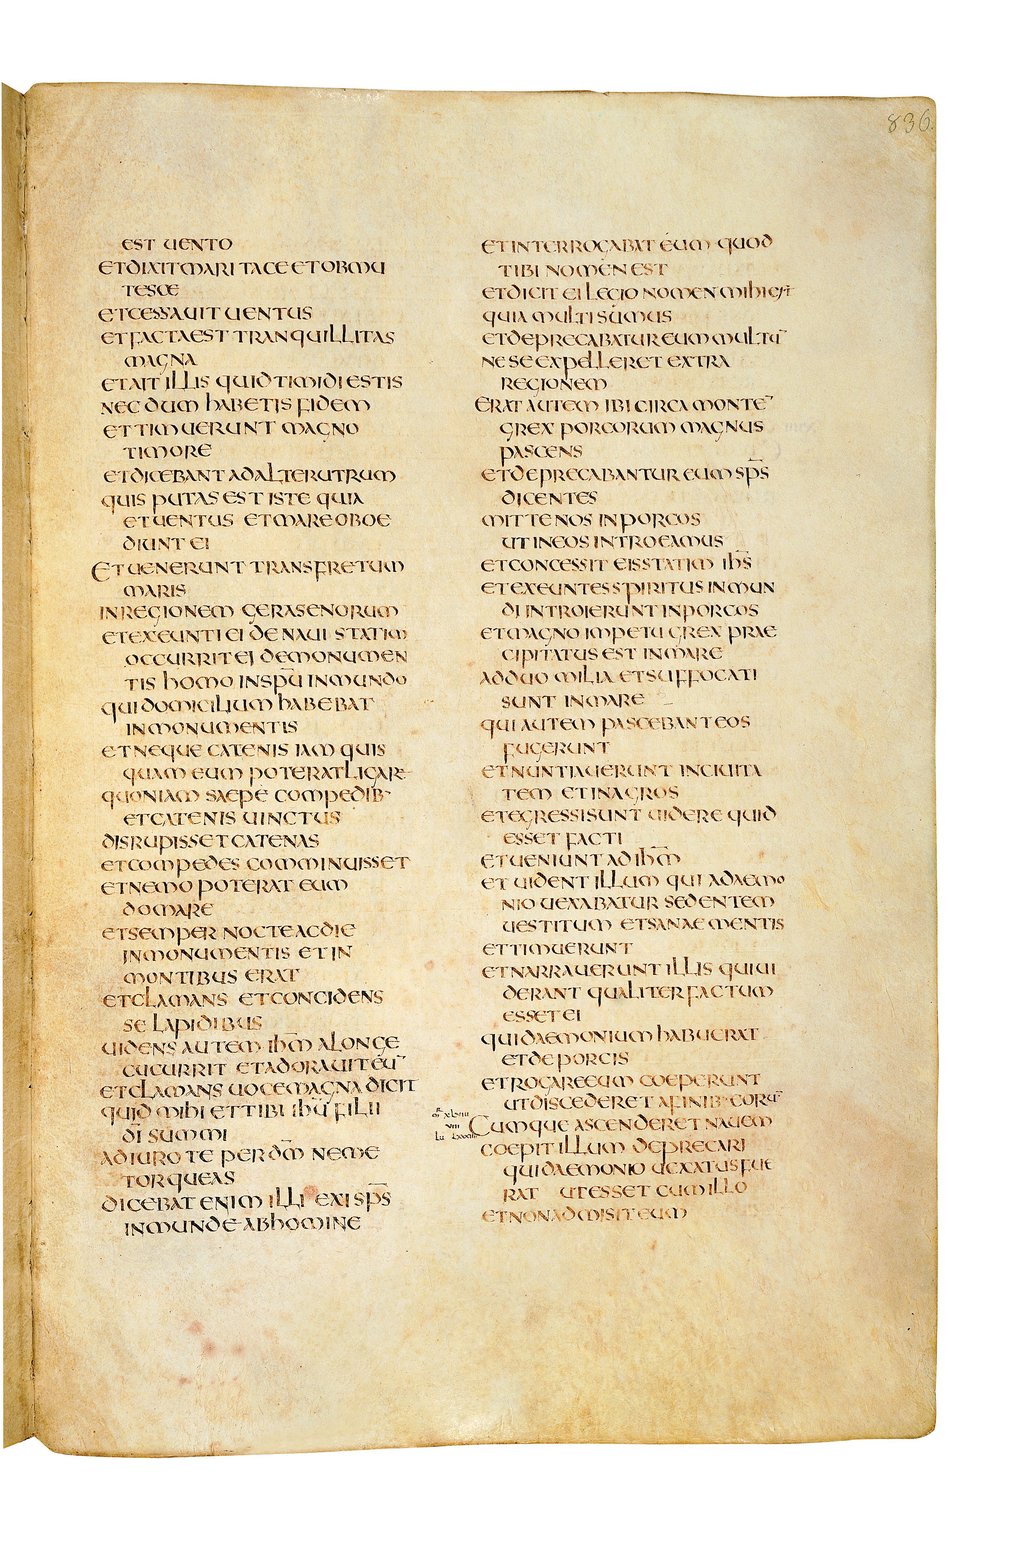 836.
EST UENTO
ET DIXIT MARI TACE ET OBMU
TESCE
ET CESSAUIT UENTUS
ET FACTA EST TRANQUILLITAS
MAGNA
ET AIT ILLIS QUID TIMIDI ESTIS
NEC DUM HABETIS FIDEM
ET TIMUERUNT MAGNO
TIMORE
ET DICEBANT AD ALTERUTRUM
QUIS PUTAS EST ISTE QUIA
ET UENTUS ET MARE OBOE
DIUNT EI
ET UENERUNT TRANS FRETUM
MARIS
IN REGIONEM GERASENORUM
ET EXEUNTI EI DE NAUI STATIM
OCCURRIT EI DE MONUMEN
TIS HOMO IN SPU̅ INMUNDO
QUI DOMICILIUM HABEBAT
IN MONUMENTIS
ET NEQUE CATENIS IAM QUIS
QUAM EUM POTERAT LIGARE
QUONIAM SAEPE COMPEDIB·
ET CATENIS UINCTUS
DISRUPISSET CATENAS
ET COMPEDES COMMINUISSET
ET NEMO POTERAT EUM
DOMARE
ET SEMPER NOCTE AC DIE
IN MONUMENTIS ET IN
MONTIBUS ERAT
ET CLAMANS ET CONCIDENS
SE LAPIDIBUS
UIDENS AUTEM IHM̅ A LONGE
CUCURRIT ET ADORAUIT EU̅
ET CLAMANS UOCE MAGNA DICIT
QUID MIHI ET TIBI IHU̅ FILII
DI̅ SUMMI
ADIURO TE PER DM̅ NE ME
TORQUEAS
DICEBAT ENIM ILLI EXI SPS̅
INMUNDE AB HOMINE
ET INTERROGABAT EUM QUOD
TIBI NOMEN EST
ET DICIT EI LEGIO NOMEN MIHI EST
QUIA MULTI SUMUS
ET DEPRECABATUR EUM MULTU̅
NE SE EXPELLERET EXTRA
REGIONEM
ERAT AUTEM IBI CIRCA MONTE̅
GREX PORCORUM MAGNUS
PASCENS
ET DEPRECABANTUR EUM SPS̅
DICENTES
MITTE NOS IN PORCOS
UT IN EOS INTROEAMUS
ET CONCESSIT EIS STATIM IHS̅
ET EXEUNTES SPIRITUS INMUN
DI INTROIERUNT IN PORCOS
ET MAGNO IMPETU GREX PRAE
CIPITATUS EST IN MARE
AD DUO MILIA ET SUFFOCATI
SUNT IN MARE
QUI AUTEM PASCEBANT EOS
FUGERUNT
ET NUNTIAUERUNT IN CIUITA
TEM ET IN AGROS
ET EGRESSI SUNT UIDERE QUID
ESSET FACTI
ET UENIUNT AD IHM̅
ET UIDENT ILLUM QUI A DAEMO
NIO UEXABATUR SEDENTEM
UESTITUM ET SANAE MENTIS
ET TIMUERUNT
ET NARRAUERUNT ILLIS QUI UI
DERANT QUALITER FACTUM
ESSET EI
QUI DAEMONIUM HABUERAT
ET DE PORCIS
ET ROGARE EUM COEPERUNT
UT DISCEDERET A FINIB· EORU̅
CUMQUE ASCENDERET NAUEM
COEPIT ILLUM DEPRECARI
QUI DAEMONIO UEXATUS FUE
RAT UT ESSET CUM ILLO
ET NON ADMISIT EUM